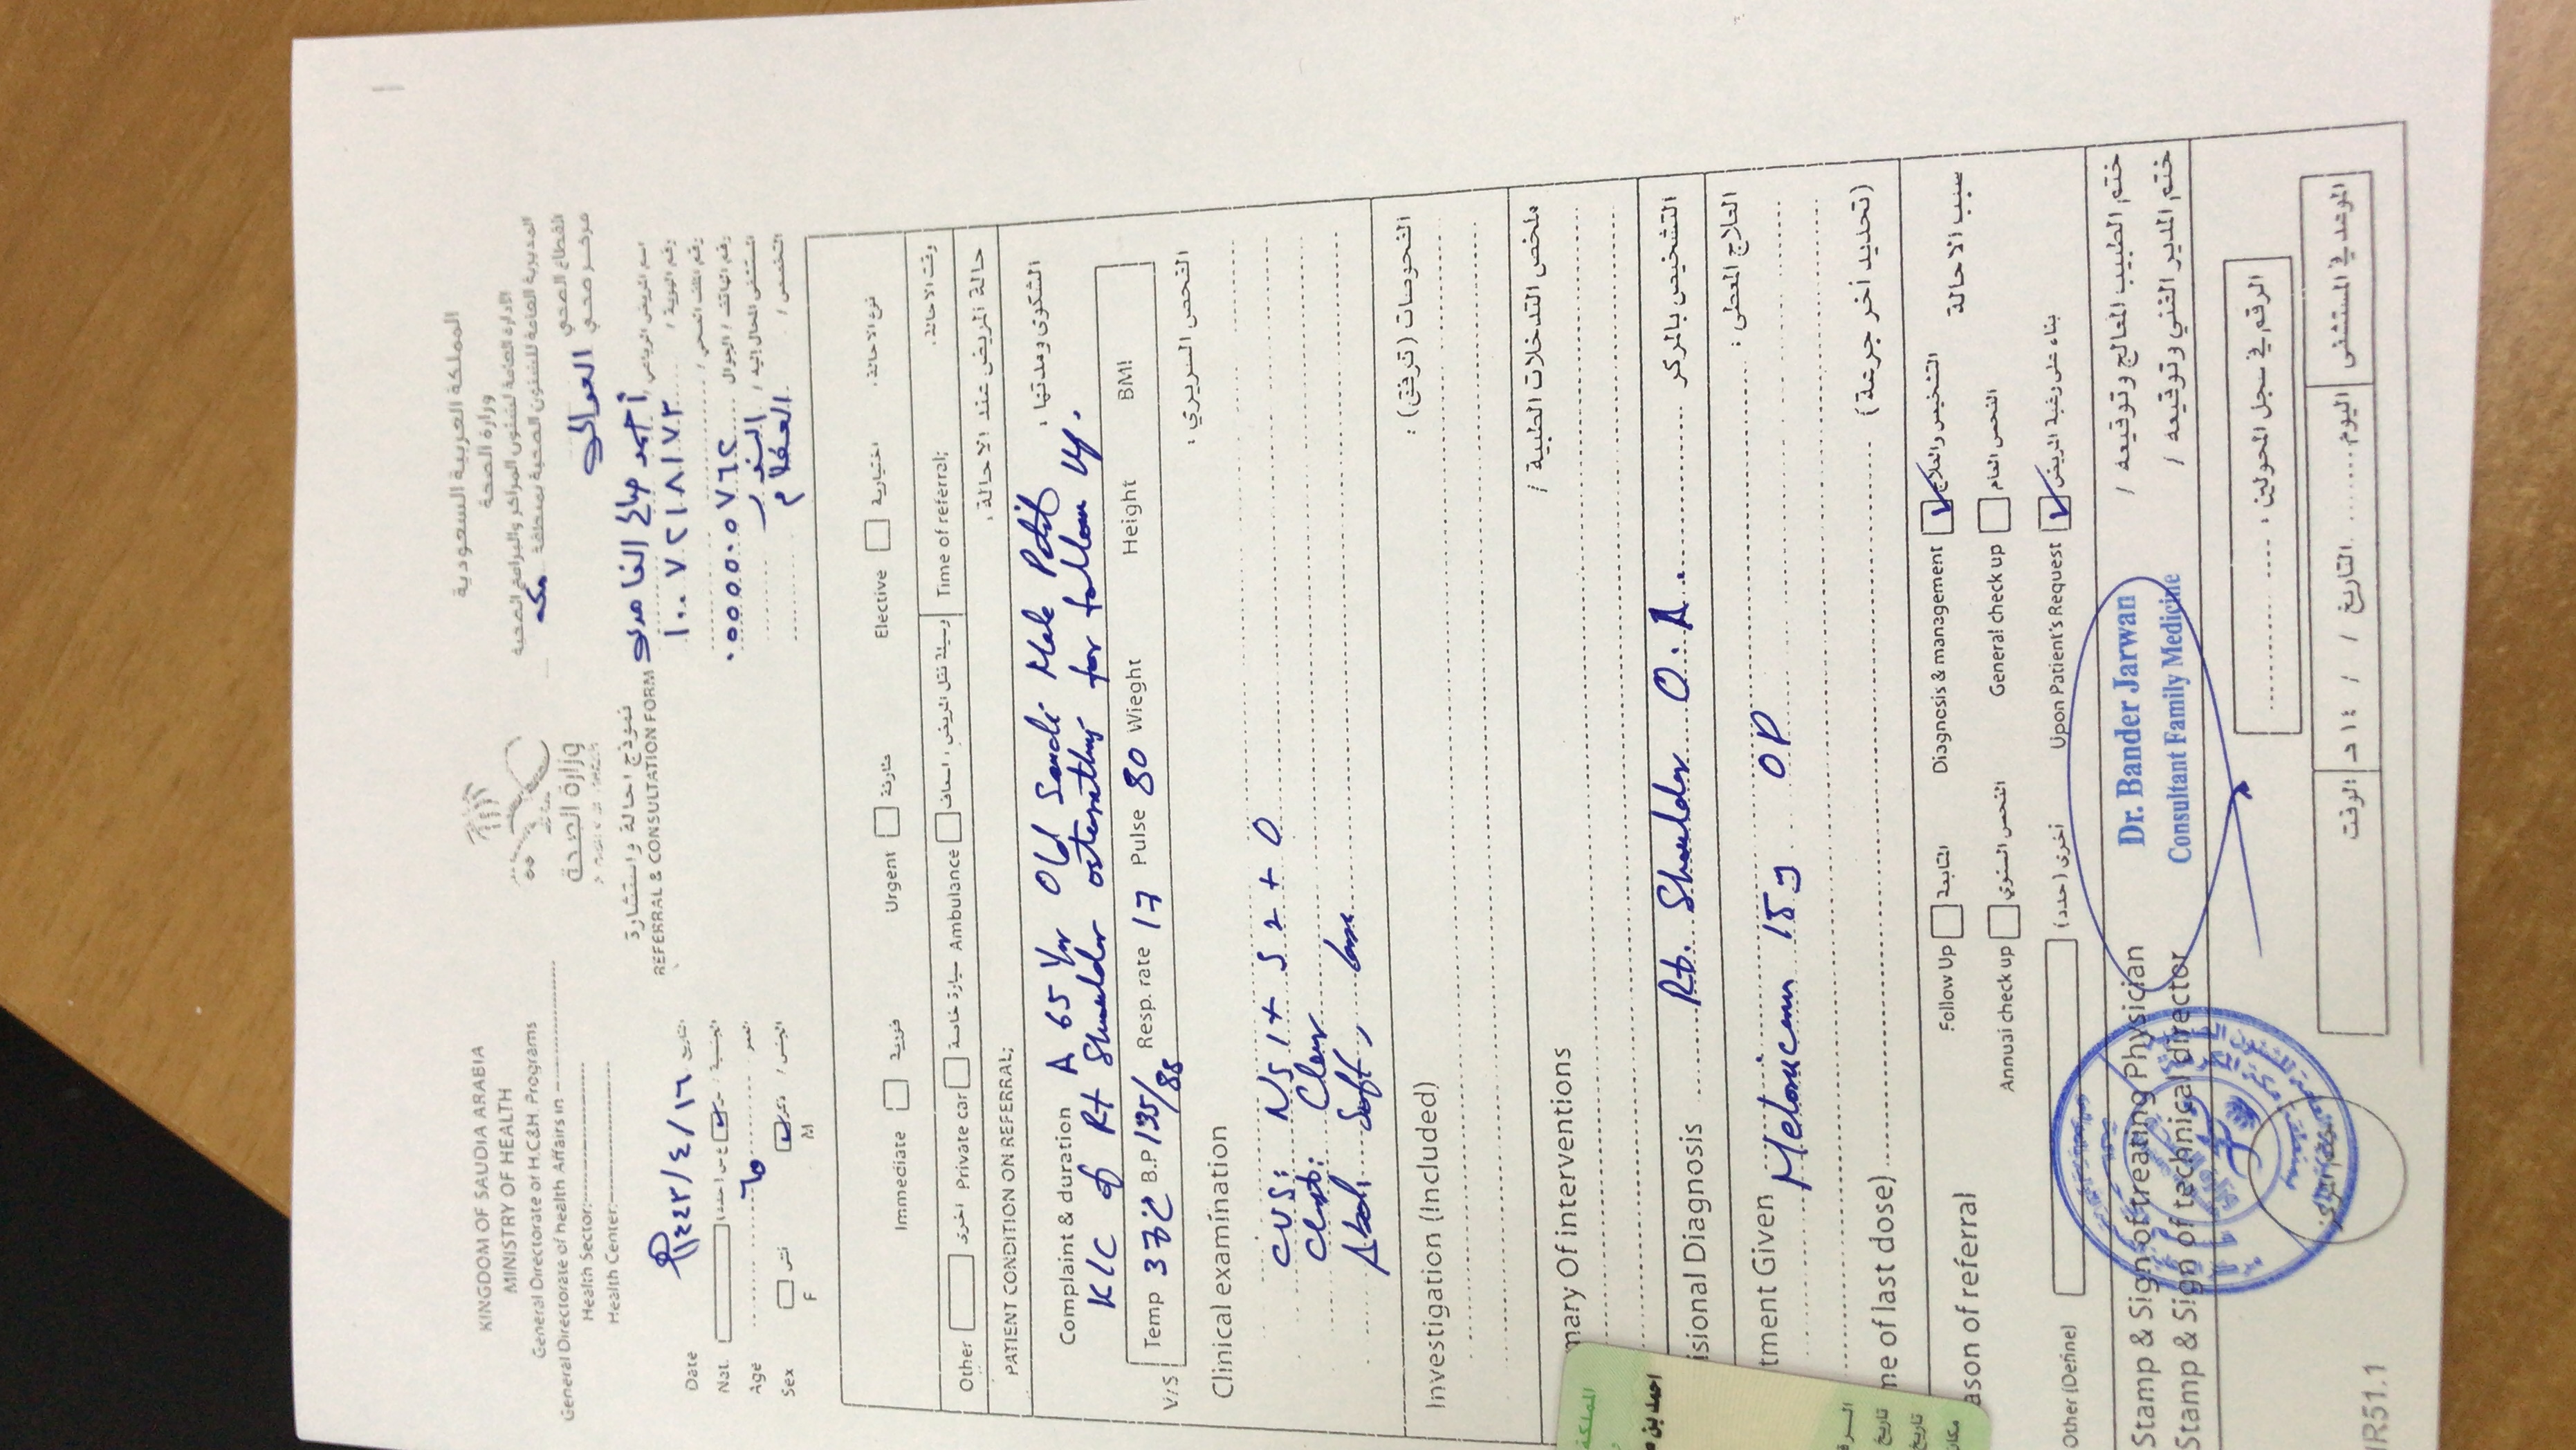 KINGDOM OF SAUDIA ARABIA
MINISTRY OF HEALTH
General Directorate of H.C&H. Programs
General Directorate of health Affairs in
Health Sector:
Health Center:
وزارة الصحة
المملكة العربية السعودية
وزارة الصحة
الادارة العامة لشئون المراكز والبرامج الصحية
المديرية العامة للشئون الصحية بمنطقة مكه
القطاع الصحي
مركز صحي العوالي
نموذج احالة واستشارة
REFERRAL & CONSULTATION FORM
اسم المريض الرباعي / أحمد صالح الغامدي
رقم الهوية / ١٠٠٧٢١٨١٧٣
رقم الملف الصحي /
رقم الهاتف / الجوال ٠٥٥٥٥٠٥٧٦٢
المستشفى المحال إليه / النور
التخصص / العظام
Date ١٤٤٣/٤/١٦ التاريخ
Nat. الجنسية / س ع س (حدد)
Age ٦٥ العمر
Sex الجنس / ذكر
F M
نوع الاحالة: اختيارية Elective Urgent فورية Immediate
وقت الاحالة: Time of referral;
وسيلة نقل المريض: اسعاف Ambulance سيارة خاصة Private car اخرى Other
PATIENT CONDITION ON REFERRAL; حالة المريض عند الاحالة:
Complaint & duration A 65 Yr Old Saudi Male الشكوى ومدتها:
K/C of Rt Shoulder for follow up.
V/S Temp 37°C B.P 135/88 Resp. rate 17 Pulse 80 Wieght Height BMI
Clinical examination الفحص السريري:
CVS: NS1 + S2 + 0
Chest: Clear
Abd: Soft, lax
Investigation (Included) الفحوصات (ترفق):
mary Of interventions ملخص التدخلات الطبية /
isional Diagnosis Rt. Shoulder O.A. التشخيص بالمركز
tment Given العلاج المعطى:
Meloxicam 15 OD
ne of last dose) (تحديد أخر جرعة)
ason of referral Follow Up المتابعة Diagnosis & management التشخيص والعلاج سبب الاحالة
Annual check up الفحص السنوي General check up الفحص العام
Other (Define) أخرى (حدد) Upon Patient's Request بناء على رغبة المريض
Stamp & Sign of treating Physician ختم الطبيب المعالج وتوقيعه /
Stamp & Sign of technical director ختم المدير الفني وتوقيعه /
Dr. Bander Jarwan
Consultant Family Medicine
ختم المركز
الرقم في سجل المحولين:
الموعد في المستشفى اليوم التاريخ / / ١٤ هـ الوقت
IR51.1
المملكة
احمد بن
تاريخ
تاريخ
مكان